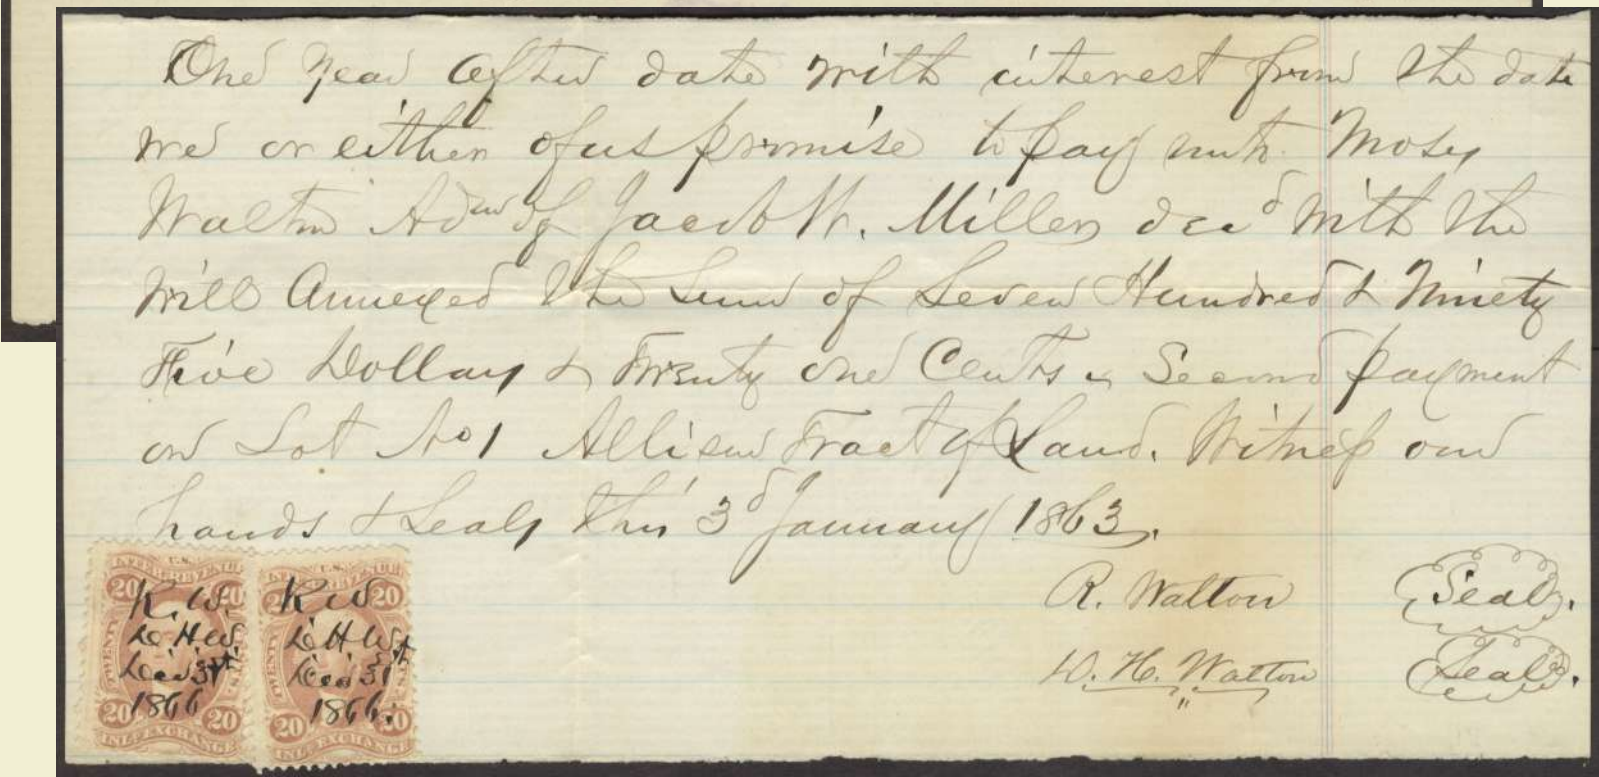 One year after date with interest from the date
we or either of us promise to pay unto Moses
Walton Adm of Jacob W. Miller decd with the
will Annexed the Sum of Seven Hundred & Ninety
Five Dollars & Twenty one Cents Second payment
on Lot No 1 Allison Tract of Land. Witness our
hands & Seals this 3d January 1863.
R. Walton Seal.
D. H. Walton Seal.
U.S. INTER. REVENUE
20 20
R. W.
D. H. W.
Dec 31st
1866
20 20
INL. EXCHANGE
U.S. INTER. REVENUE
20 20
R W
D. H. W.
Dec 31st
1866.
20 20
INL. EXCHANGE